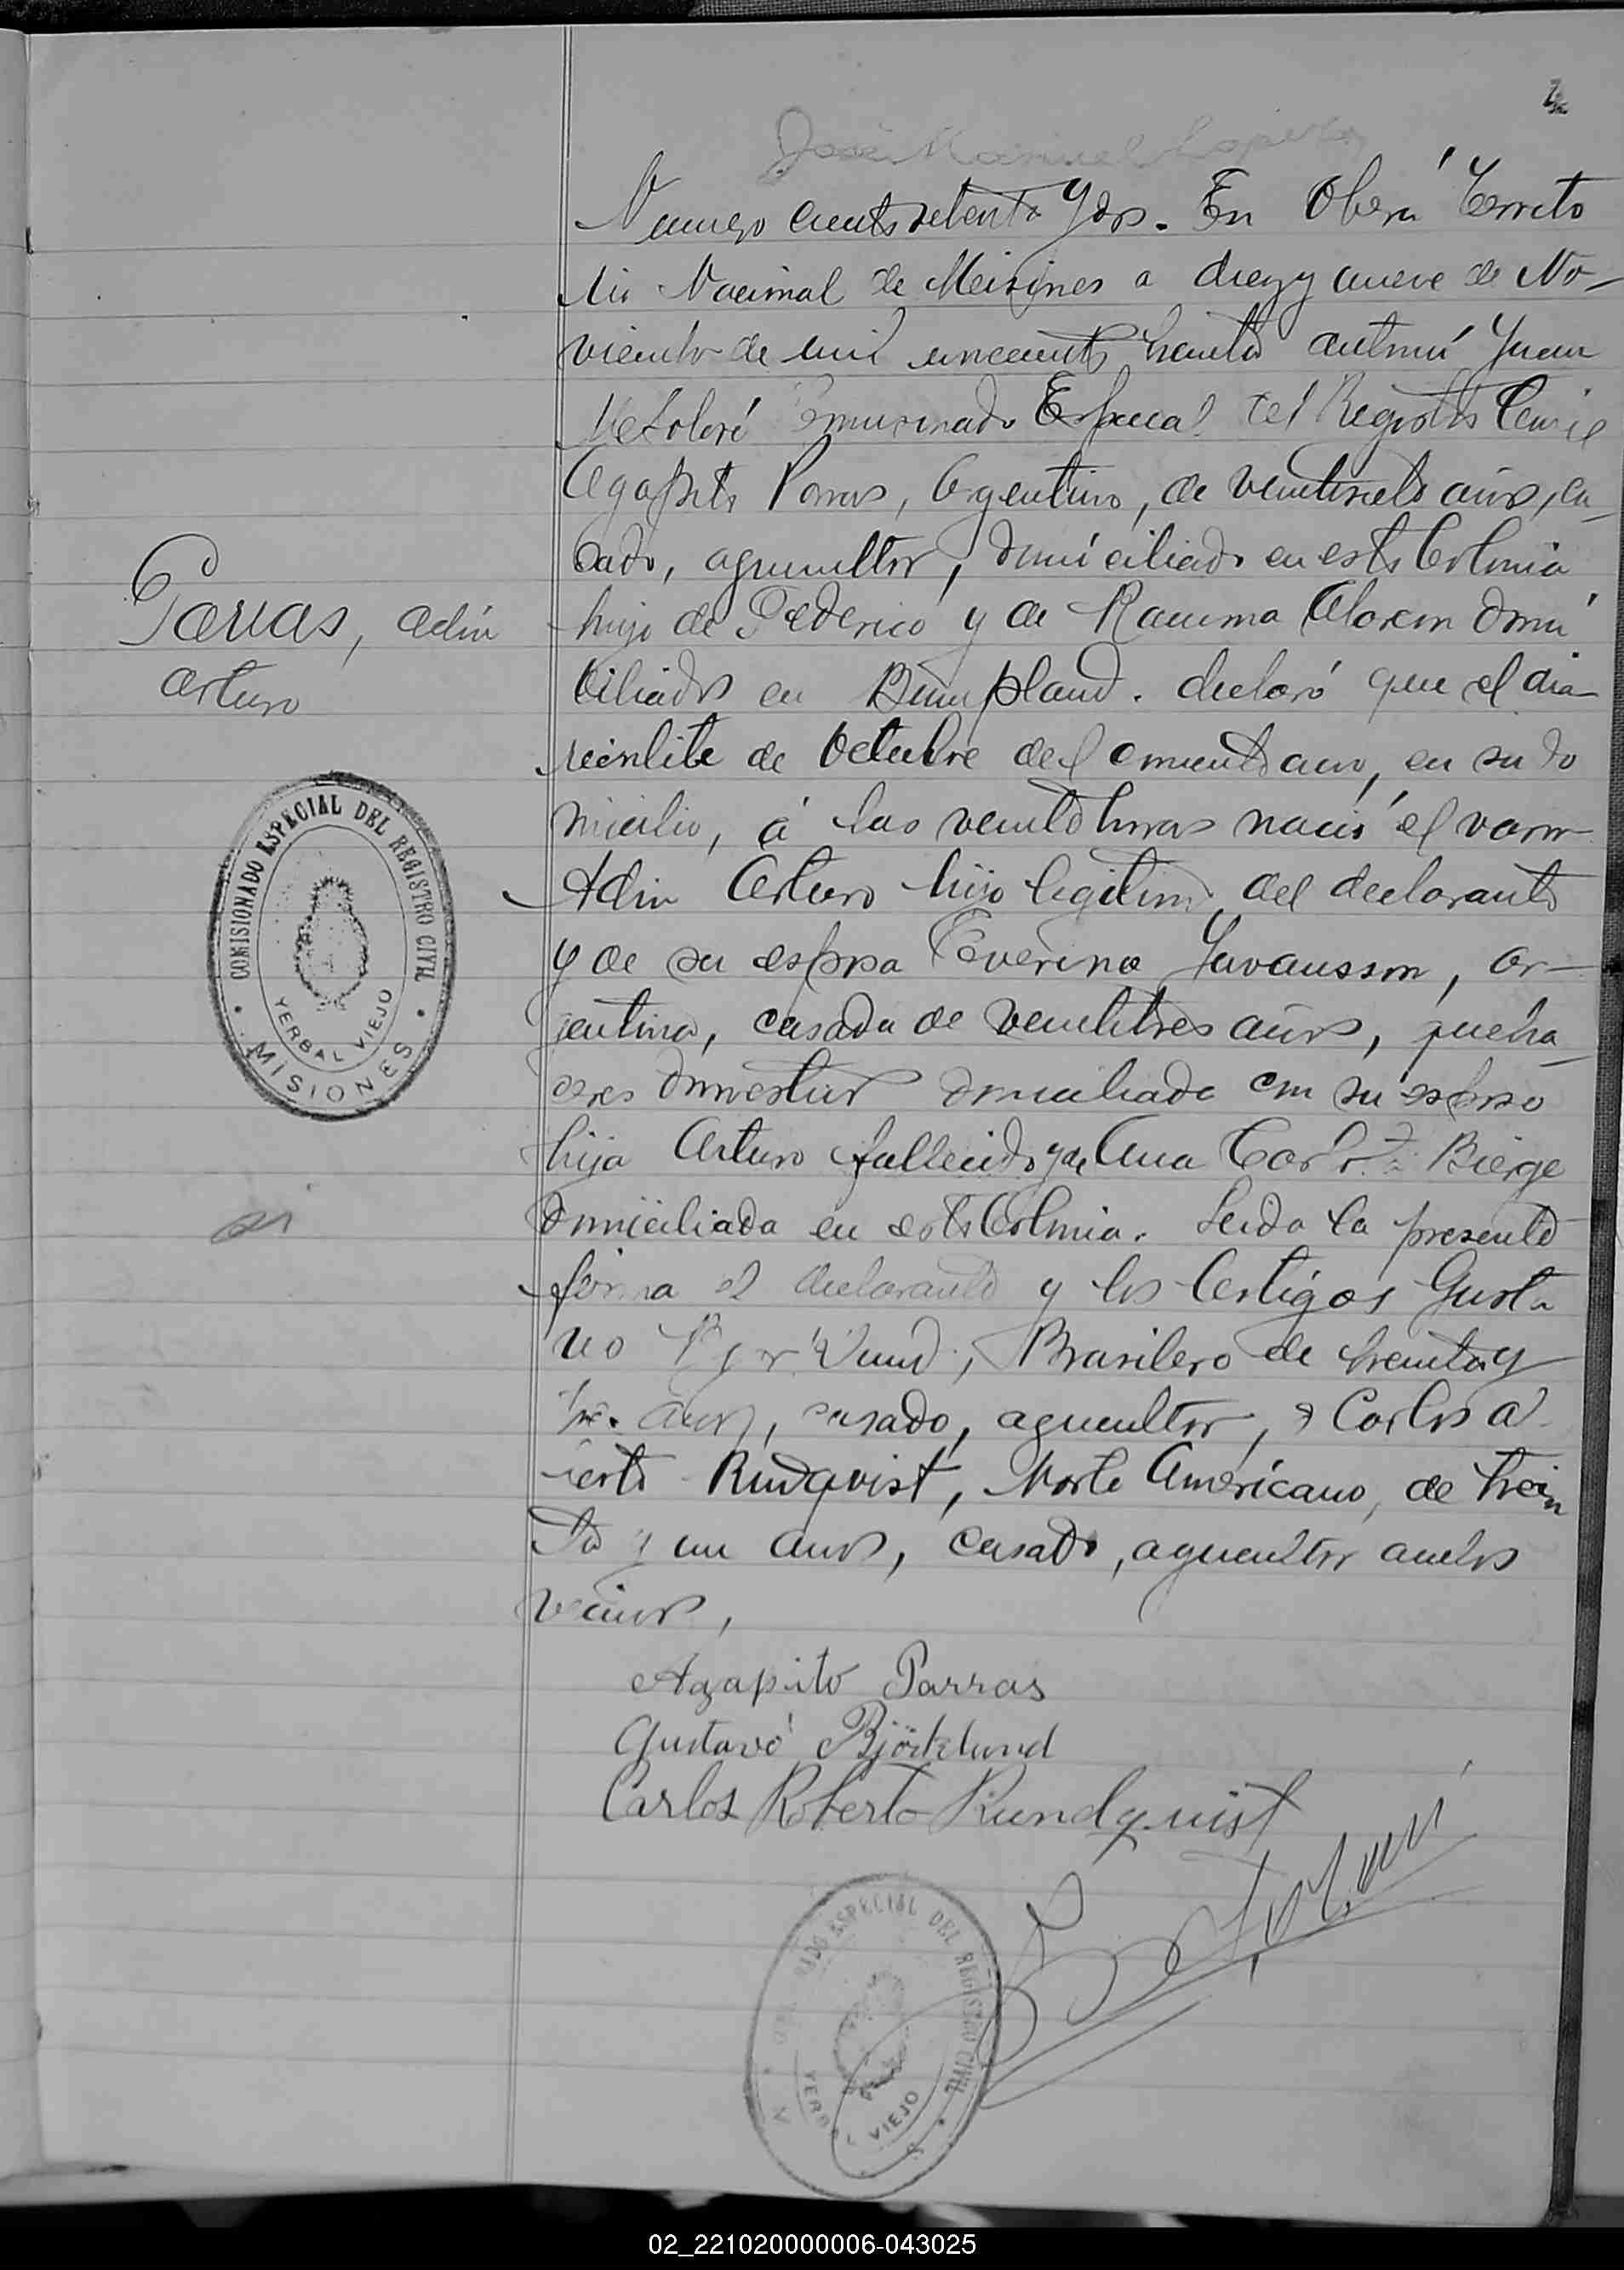 2
José Manuel Lopez
Numero ciento setenta y dos. En Oberá Territo
rio Nacional de Misiones a diez y nueve de No-
viembre de mil novecientos treinta ante mí Juan
Comisionado Especial del Registro Civil
Agapito Parras, Argentino, de veintisiete años, ca-
sado, agricultor, domiciliado en esta Colonia
hijo de Federico y de Ramona Alarcon domi
ciliados en Bompland. declaró que el dia
veintisiete de Octubre del corriente año, en su do
micilio, á las veinte horas nació el varon
Adin Arturo hijo legitimo del declarante
y de su esposa Severina, ar-
jentina, casada de veintitres años, queha
ceres domesticos domiciliada con su esposo
hija Arturo fallecido y de Ana Bierge
domiciliada en esta Colonia. Leida la presente
firma el declarante y los testigos Gusta
vo, Brasilero de treinta y
años, casado, agricultor, y Carlos
Rundqvist, Norte Americano, de trein
ta y un años, casado, agricultor ambos
vecinos,
Parras, Adin
Arturo
COMISIONADO ESPECIAL DEL REGISTRO CIVIL
YERBAL VIEJO
MISIONES
Agapito Parras
Gustavo Björklund
Carlos Roberto Rundquist
ESPECIAL DEL REGISTRO CIVIL
VIEJO
02_221020000006-043025